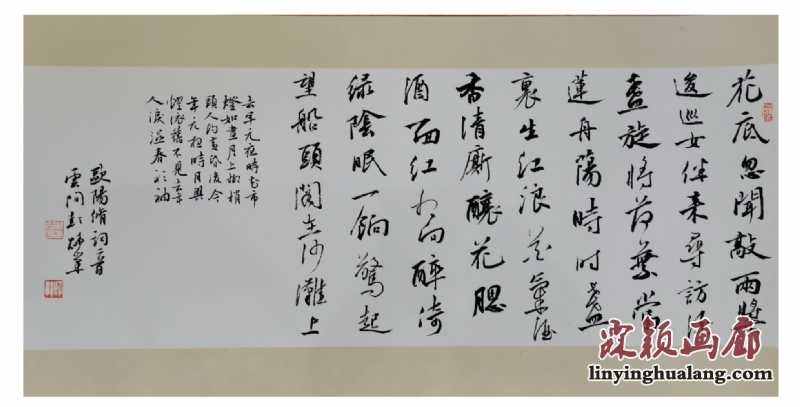 花底忽聞敲兩槳
逡巡女伴來尋訪酒
盞旋將荷葉當
蓮舟蕩時時盞
裏生紅浪花氣酒
香清廝釀花腮
酒面紅相向醉倚
綠陰眠一餉驚起
望船頭閣在沙灘上
去年元夜時花市
燈如晝月上柳梢
頭人約黃昏後今
年元夜時月與
燈依舊不見去年
人淚濕春衫袖
歐陽脩詞
雲間彭
霖颖画廊
linyinghualang.com